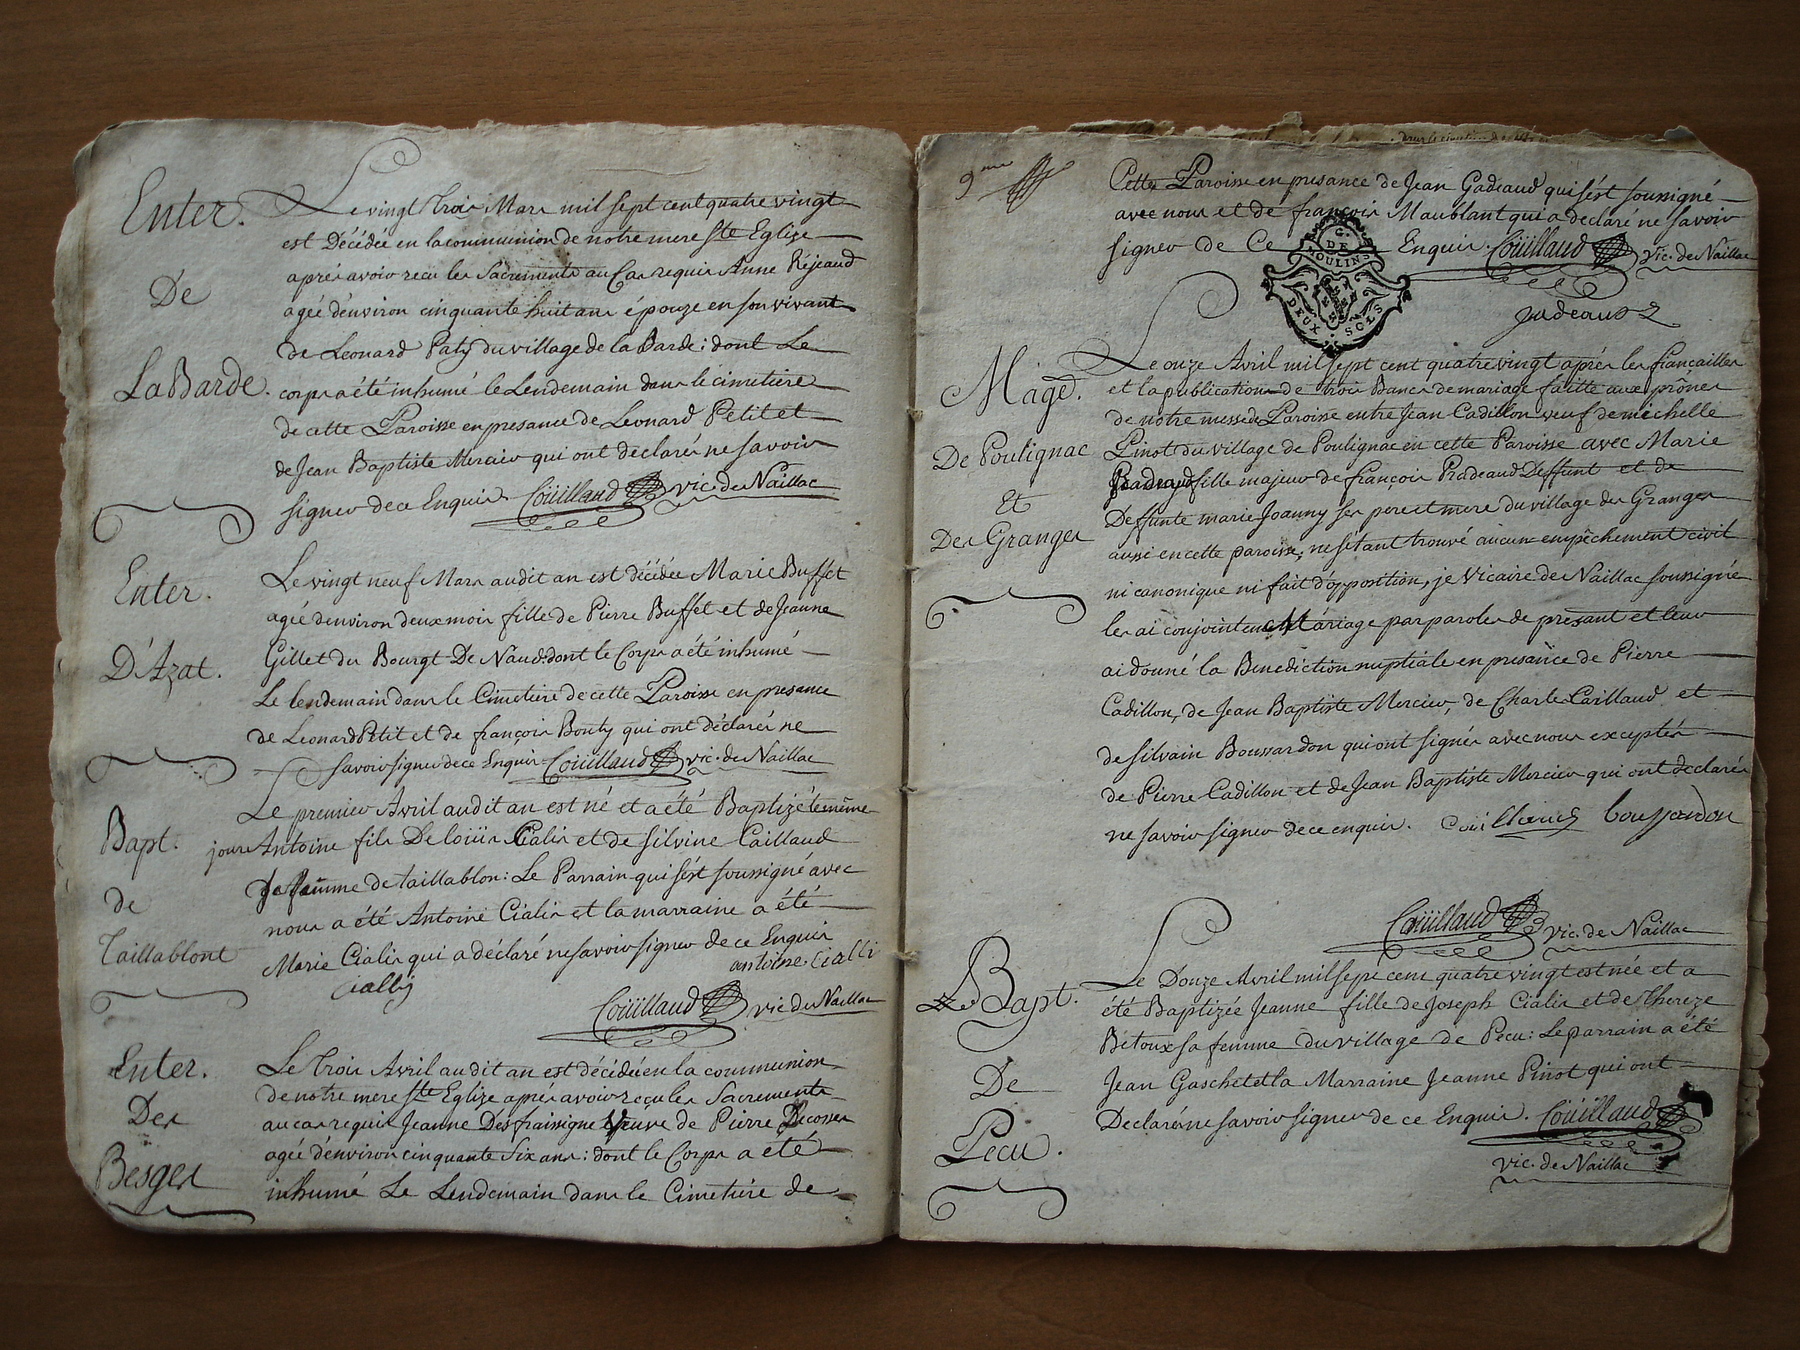 Enter.
De
La Barde.
Le vingt trois Mars mil sept cent quatre vingt
est Décédée en la communion de notre mere Ste Eglize
aprés avoir recu les Sacrements au Cas requis Anne Réjeaud
agée d'environ cinquante huit ans épouze en son vivant
de Leonard Paty du village de la Barde ; dont Le
corps a été inhumé le Lendemain dans le cimetiere
de cette Paroisse en presance de Leonard Petit et
de Jean Baptiste Mercier qui ont declarés ne savoir
signer de ce Enquis Coüillaud vic. de Naillac
Enter.
D'Azat.
Le vingt neuf Mars audit an est décédée Marie Buffet
agée d'environ deux mois fille de Pierre Buffet et de Jeanne
Gillet du Bourgt De Naud: dont le Corps a été inhumé
Le lendemain dans le Cimetiere de cette Paroisse en presance
de Leonard Petit et de françois Bouty qui ont déclarés ne
savoir signer de ce Enquis Coüillaud vic. de Naillac
Bapt.
de
Taillablont
Le premier Avril audit an est né et a été Baptizé le même
jour Antoine fils De loüis Cialis et de silvine Caillaud
sa femme de taillablon : Le Parrain qui s'ést soussigné avec
nous a été Antoine Cialis et la marraine a été
Marie Cialis qui a déclaré ne savoir signer de ce Enquis
antoine Cialli
Cially
Coüillaud vic de Naillac
Enter.
Des
Besges
Le trois Avril audit an est décédée en la communion
de notre mere Ste Eglize aprés avoir reçu les Sacrements
au cas requis Jeanne Desfraisigne Veuve de Pierre Decosses
agée d'environ cinquante Six ans : dont le Corps a été
inhumé Le Lendemain dans le Cimetiére de
9me
Cette Paroisse en presance de Jean Gadeaud qui s'ést soussigné
avec nous et de françois Maublant qui a declaré ne savoir
signer de Ce Enquis. Coüillaud vic. de Naillac
G. DE MOULINS
DEUX SOLS
jadeaud
Mage.
De Poulignac
Et
Des Granges
Le onze Avril mil sept cent quatre vingt aprés les fiançailles
et la publication de trois Bancs de mariage faitte aux prônes
de notre messe de Paroisse entre Jean Cadillon veuf de mechelle
Pinot du village de Poulignac en cette Paroisse avec Marie
Pradeaud fille majeur de françois Pradeaud Deffunt et de
Deffunte marie Joanny ses pere et mere du village des Granges
aussi en cette paroisse, ne s'étant trouvé aucun empêchement civil
ni canonique ni fait d'opposition, je Vicaire de Naillac soussigné
les ai conjoint en Mariage par paroles de présant et leur
ai donné la Benediction nuptiale en presance de Pierre
Cadillon, de Jean Baptiste Mercier, de Charle Caillaud et
de silvain Boussardon qui ont signés avec nous exceptés
de Pierre Cadillon et de Jean Baptiste Mercier qui ont declarés
ne savoir signer de ce enquis. boussardon
Coüillaud vic. de Naillac
Bapt.
De
Pecu.
Le Douze Avril mil sept cent quatre vingt est née et a
été Baptizée Jeanne fille de Joseph Cialis et de thereze
Bétoux sa femme du village de Pecu : Le parrain a été
Jean Gaschet et la Marraine Jeanne Pinot qui ont
Declarés ne savoir signer de ce Enquis. Coüillaud
vic. de Naillac